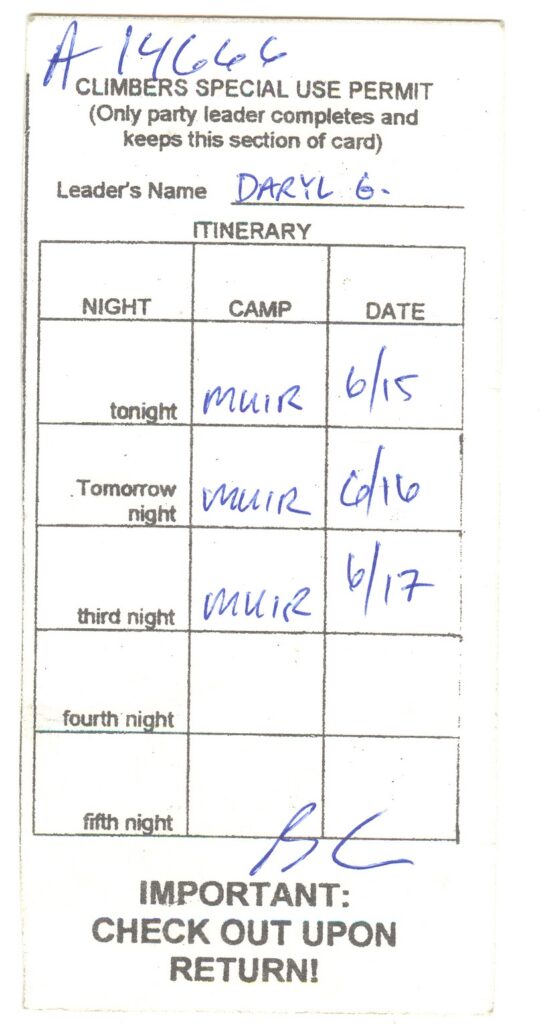 A 14666
CLIMBERS SPECIAL USE PERMIT
(Only party leader completes and
keeps this section of card)
Leader's Name DARYL G.
ITINERARY
NIGHT CAMP DATE
tonight MUIR 6/15
Tomorrow
night MUIR 6/16
third night MUIR 6/17
fourth night
fifth night
IMPORTANT:
CHECK OUT UPON
RETURN!